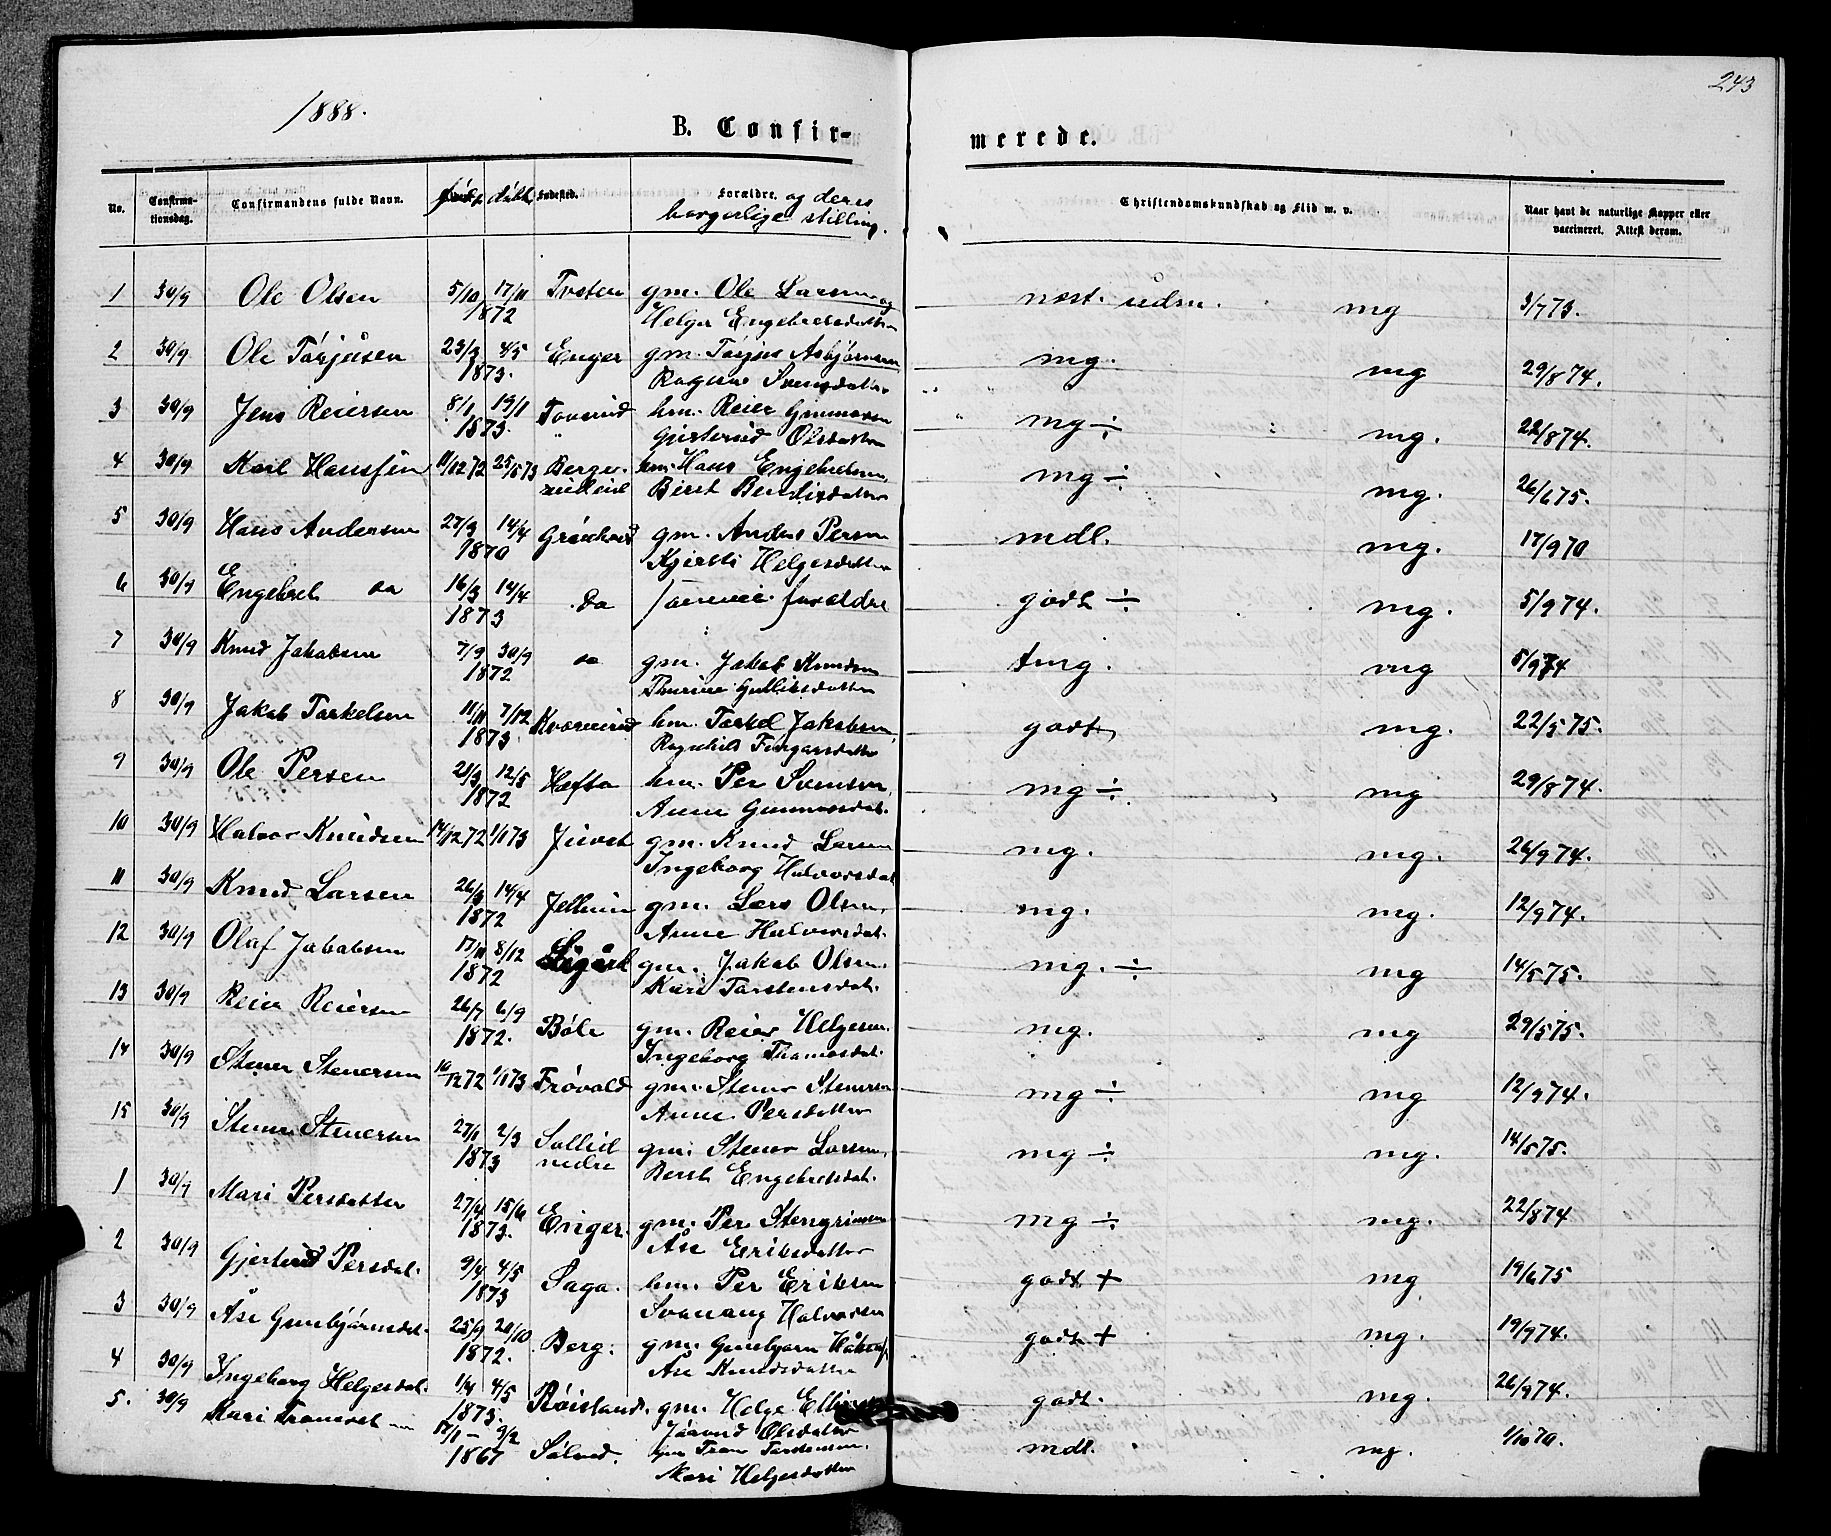 243
1888.
B. Confir-
merede.
No.
Confirma-
tionsdag.
Confirmandens fulde Navn.
født,
døbt,
Fødested.
Forældre. og deres
borgerlige stilling.
Christendomskundskab og Flid m. v.
Naar havt de naturlige Kopper eller
vaccineret. Attest derom.
1 30/9 Ole Olsen 5/10 17/11 gm. Ole Larsen og mg 3/7 73.
1872 Helga Engebretsdatter
2 30/9 Ole Tørjusen 23/3 4/5 Enger gm. Tørjus Asbjørnsen mg. mg 29/8 74.
1873. Svensdatter
3 30/9 Jens Reiersen 8/1 19/1 hm. Reier Gunnarsen mg ÷ mg. 22/8 74.
1873. Olsdatter
4 30/9 Karl Hansen 11/12 72 25/ 73 Berge- hm. Hans Engebretsen mg ÷ mg. 26/6 75.
Berit
5 30/9 Hans Andersen 27/3 14/4 gm. Anders Persen mdl. mg. 17/9 70
1870 Kjersti Helgesdatter
6 30/9 Engebret do 16/3 14/4 Do samme forældre godt ÷ mg. 5/9 74.
1873
7 30/9 Knud Jakobsen 7/9 30/9 do gm. Jakob Knudsen tmg. mg 5/9 74
1872 Thurine Gulliksdatter
8 30/9 Jakob Tarkelsen 11/11 7/12 hm. Tarkel Jakobsen godt mg. 22/5 75.
1873. Ragnhild
9 30/9 Ole Persen 21/3 12/5 Hæfta hm. Per Svensen mg ÷ mg 29/8 74.
1872 Anne Gunnarsdat.
10 30/9 Halvor Knudsen 14/12 72 1/1 73 gm. Knud Larsen mg. mg. 26/9 74.
Ingeborg Halvorsdat
11 30/9 Knud Larsen 26/3 14/4 gm. Lars Olsen mg. mg. 12/9 74.
1872 Anne Halvorsdat.
12 30/9 Olaf Jakobsen 17/11 8/12 gm. Jakob Olsen mg. ÷ mg 14/5 75.
1872 Kari Tarstensdat.
13 30/9 Reier Reiersen 26/7 6/9 Bøle gm. Reier Helgesen mg. mg 29/5 75.
1872. Ingeborg Thomasdat.
14 30/9 Stener Stenersen 10/12 72 1/1 73 Frøvold gm. Stener Stenersen mg ÷ mg 12/9 74.
Anne Persdatter
15 30/9 Stener Stenersen 27/1 2/3 gm. Stener Larsen mg ÷ mg. 14/5 75.
1873 nedre Berit Engebretsdat.
1 30/9 Mari Persdatter 27/4 15/6 Enger. gm. Per Stengrimsen mg ÷ mg. 22/8 74
1873. Åse Eriksdatter
2 30/9 Gjertrud Persdat. 9/4 4/5 Saga. hm. Per Eriksen godt + mg 19/6 75
1873 Svanaug
3 30/9 Åse Gunbjørnsdat. 25/9 20/10 Berg. gm. Gunbjørn godt + mg. 19/9 74.
1872. Åse Knudsdatter
4 30/9 Ingeborg Helgesdat. 1/4 4/5 Røisland. gm. Helge godt. mg. 26/9 74.
1873. Olsdatter
5. 30/9 Kari 17/1 9/2 mdl. mg. 1/10 70.
1867 Mari Helgesdatter